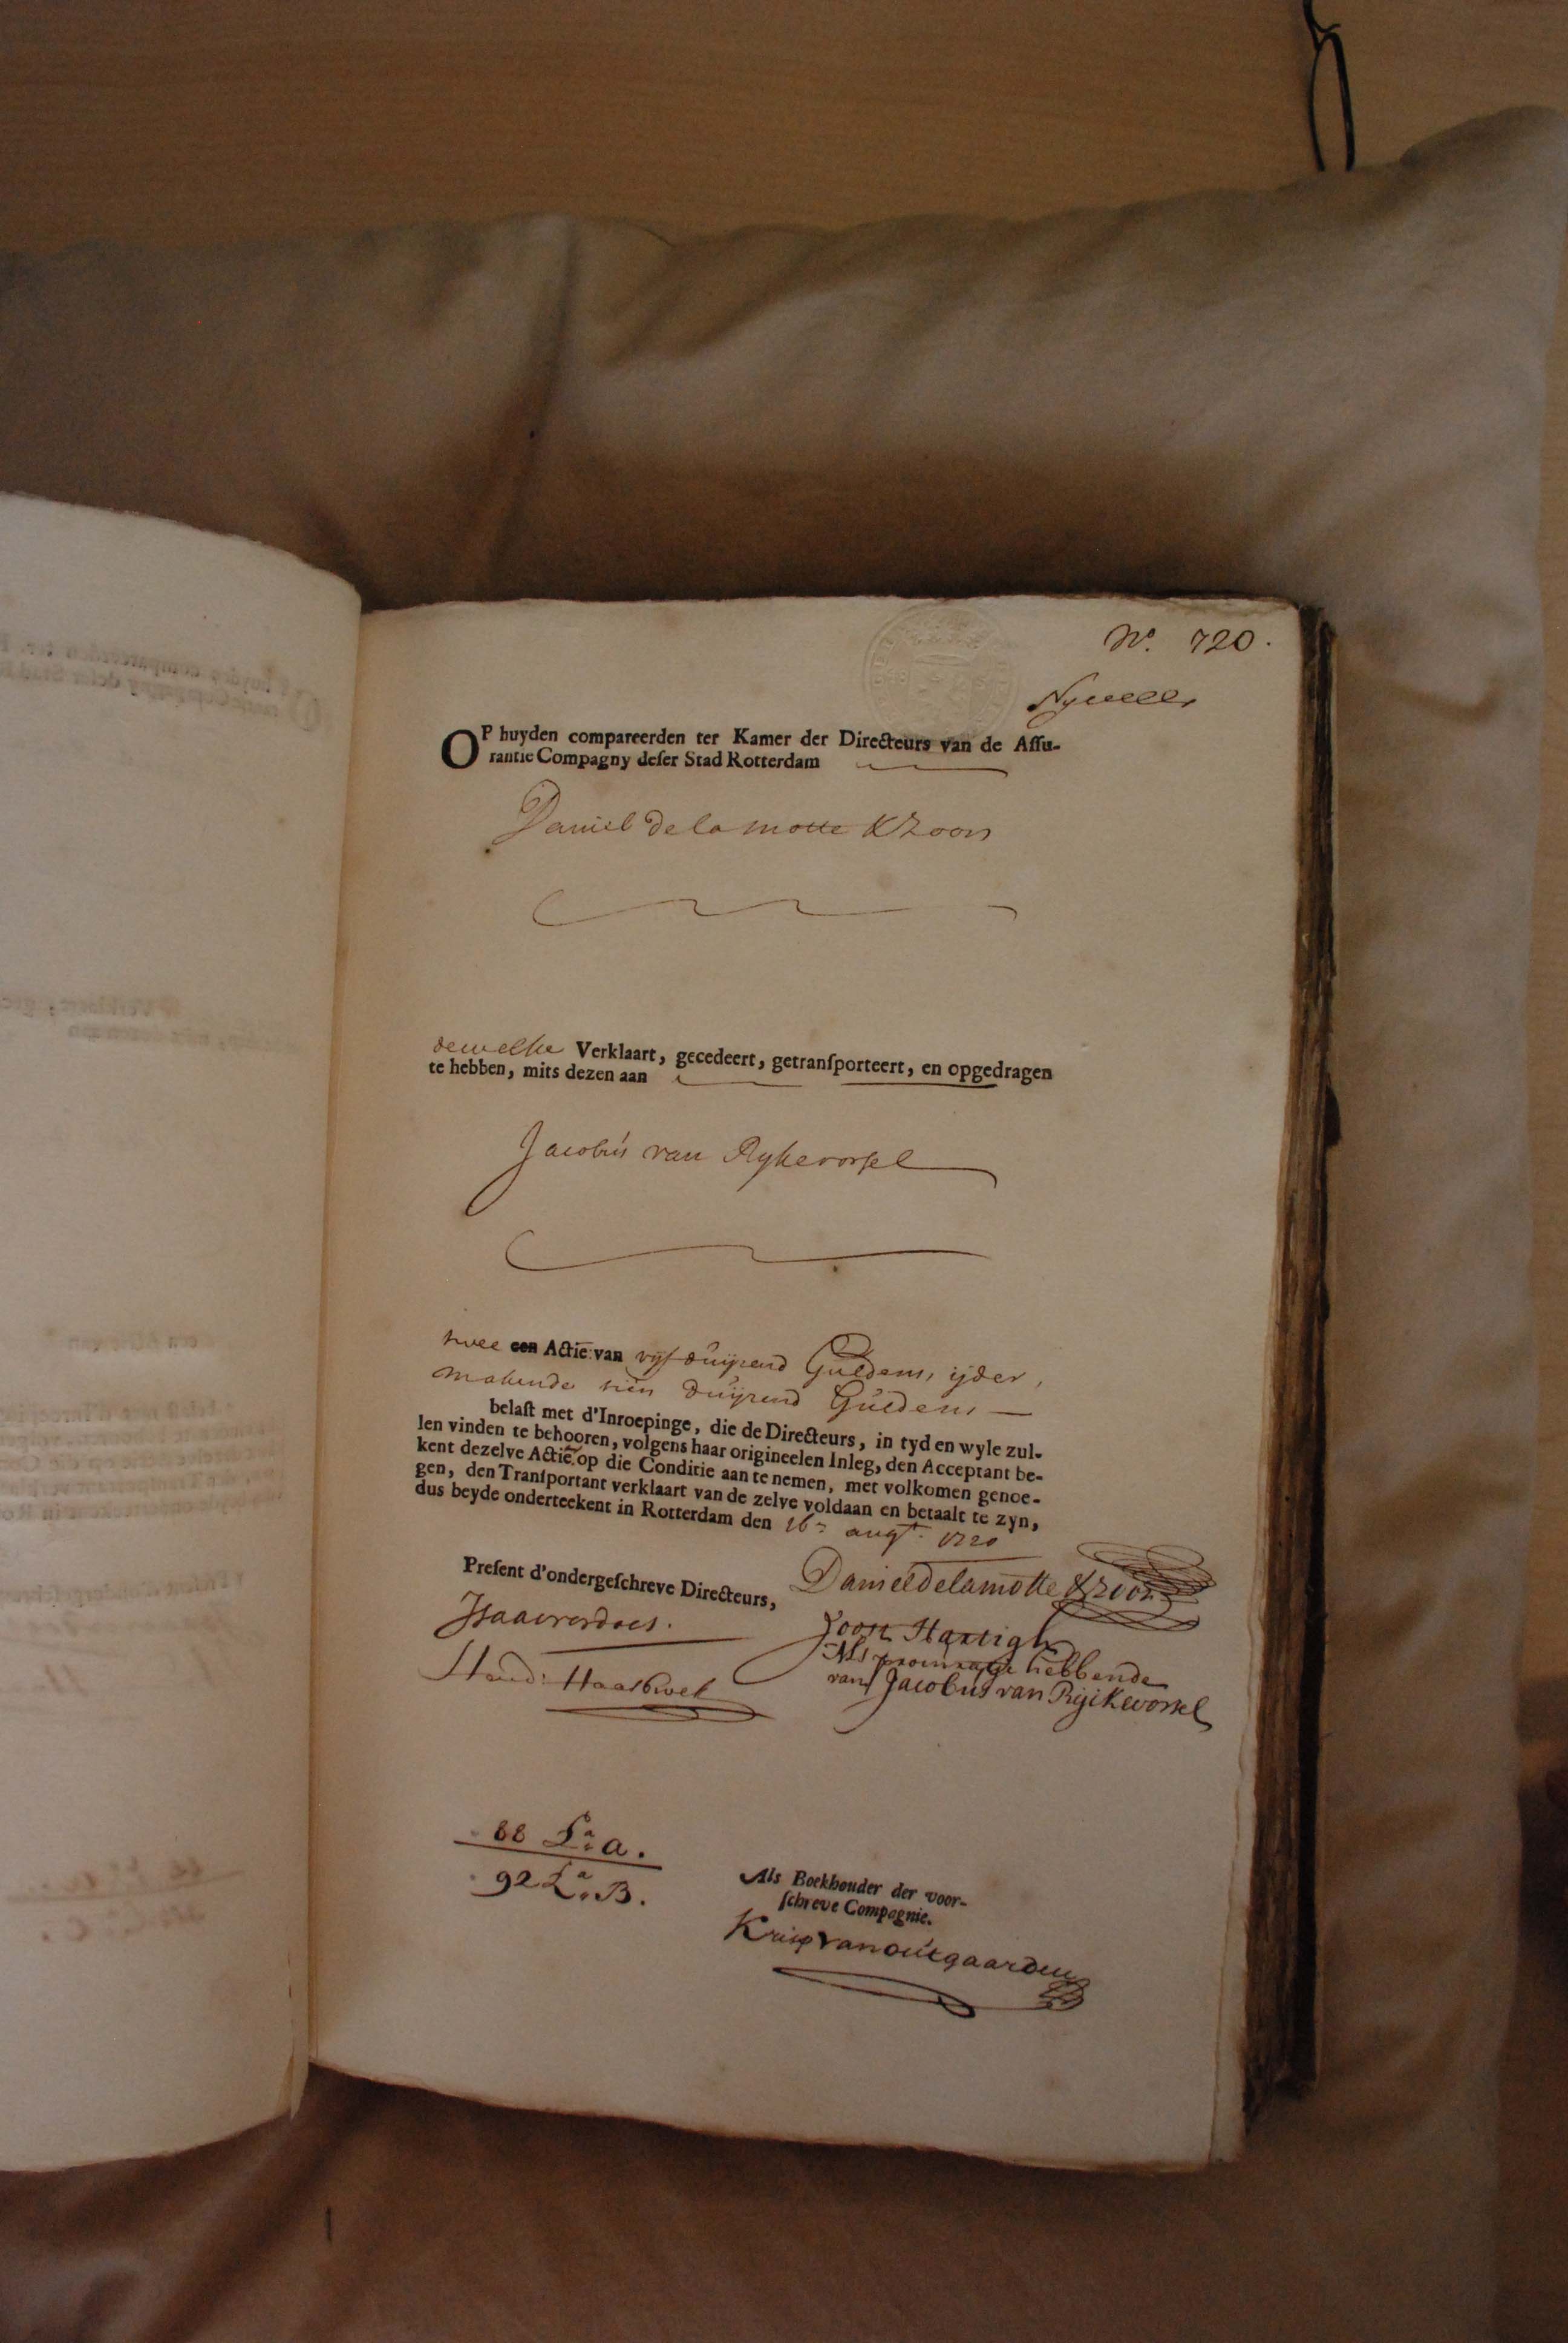 No. 720.
OP huyden compareerden ter Kamer der Directeurs van de Assu-
rantie Compagny deser Stad Rotterdam
Daniel de la motte KZoon
dewelke Verklaart, gecedeert, getransporteert, en opgedragen
te hebben, mits dezen aan
Jacobus van Rykevorsel
twee een Actie van vyf duysend Guldens, yder,
makende tien duysend Guldens
belast met d'Inroepinge, die de Directeurs, in tyd en wyle zul-
len vinden te behooren, volgens haar origineelen Inleg, den Acceptant be-
kent dezelve Actie op die Conditie aan te nemen, met volkomen genoe-
gen, den Transportant verklaart van de zelve voldaan en betaalt te zyn,
dus beyde onderteekent in Rotterdam den 16 augt. 1720
Present d'ondergeschreve Directeurs,
Daniel delamotte KZoon
Joost Hartigh
Als procuratie hebbende
van Jacobus van Rijckevorsel
88 La. a.
92 La. B.
Als Boekhouder der voor-
schreve Compagnie.